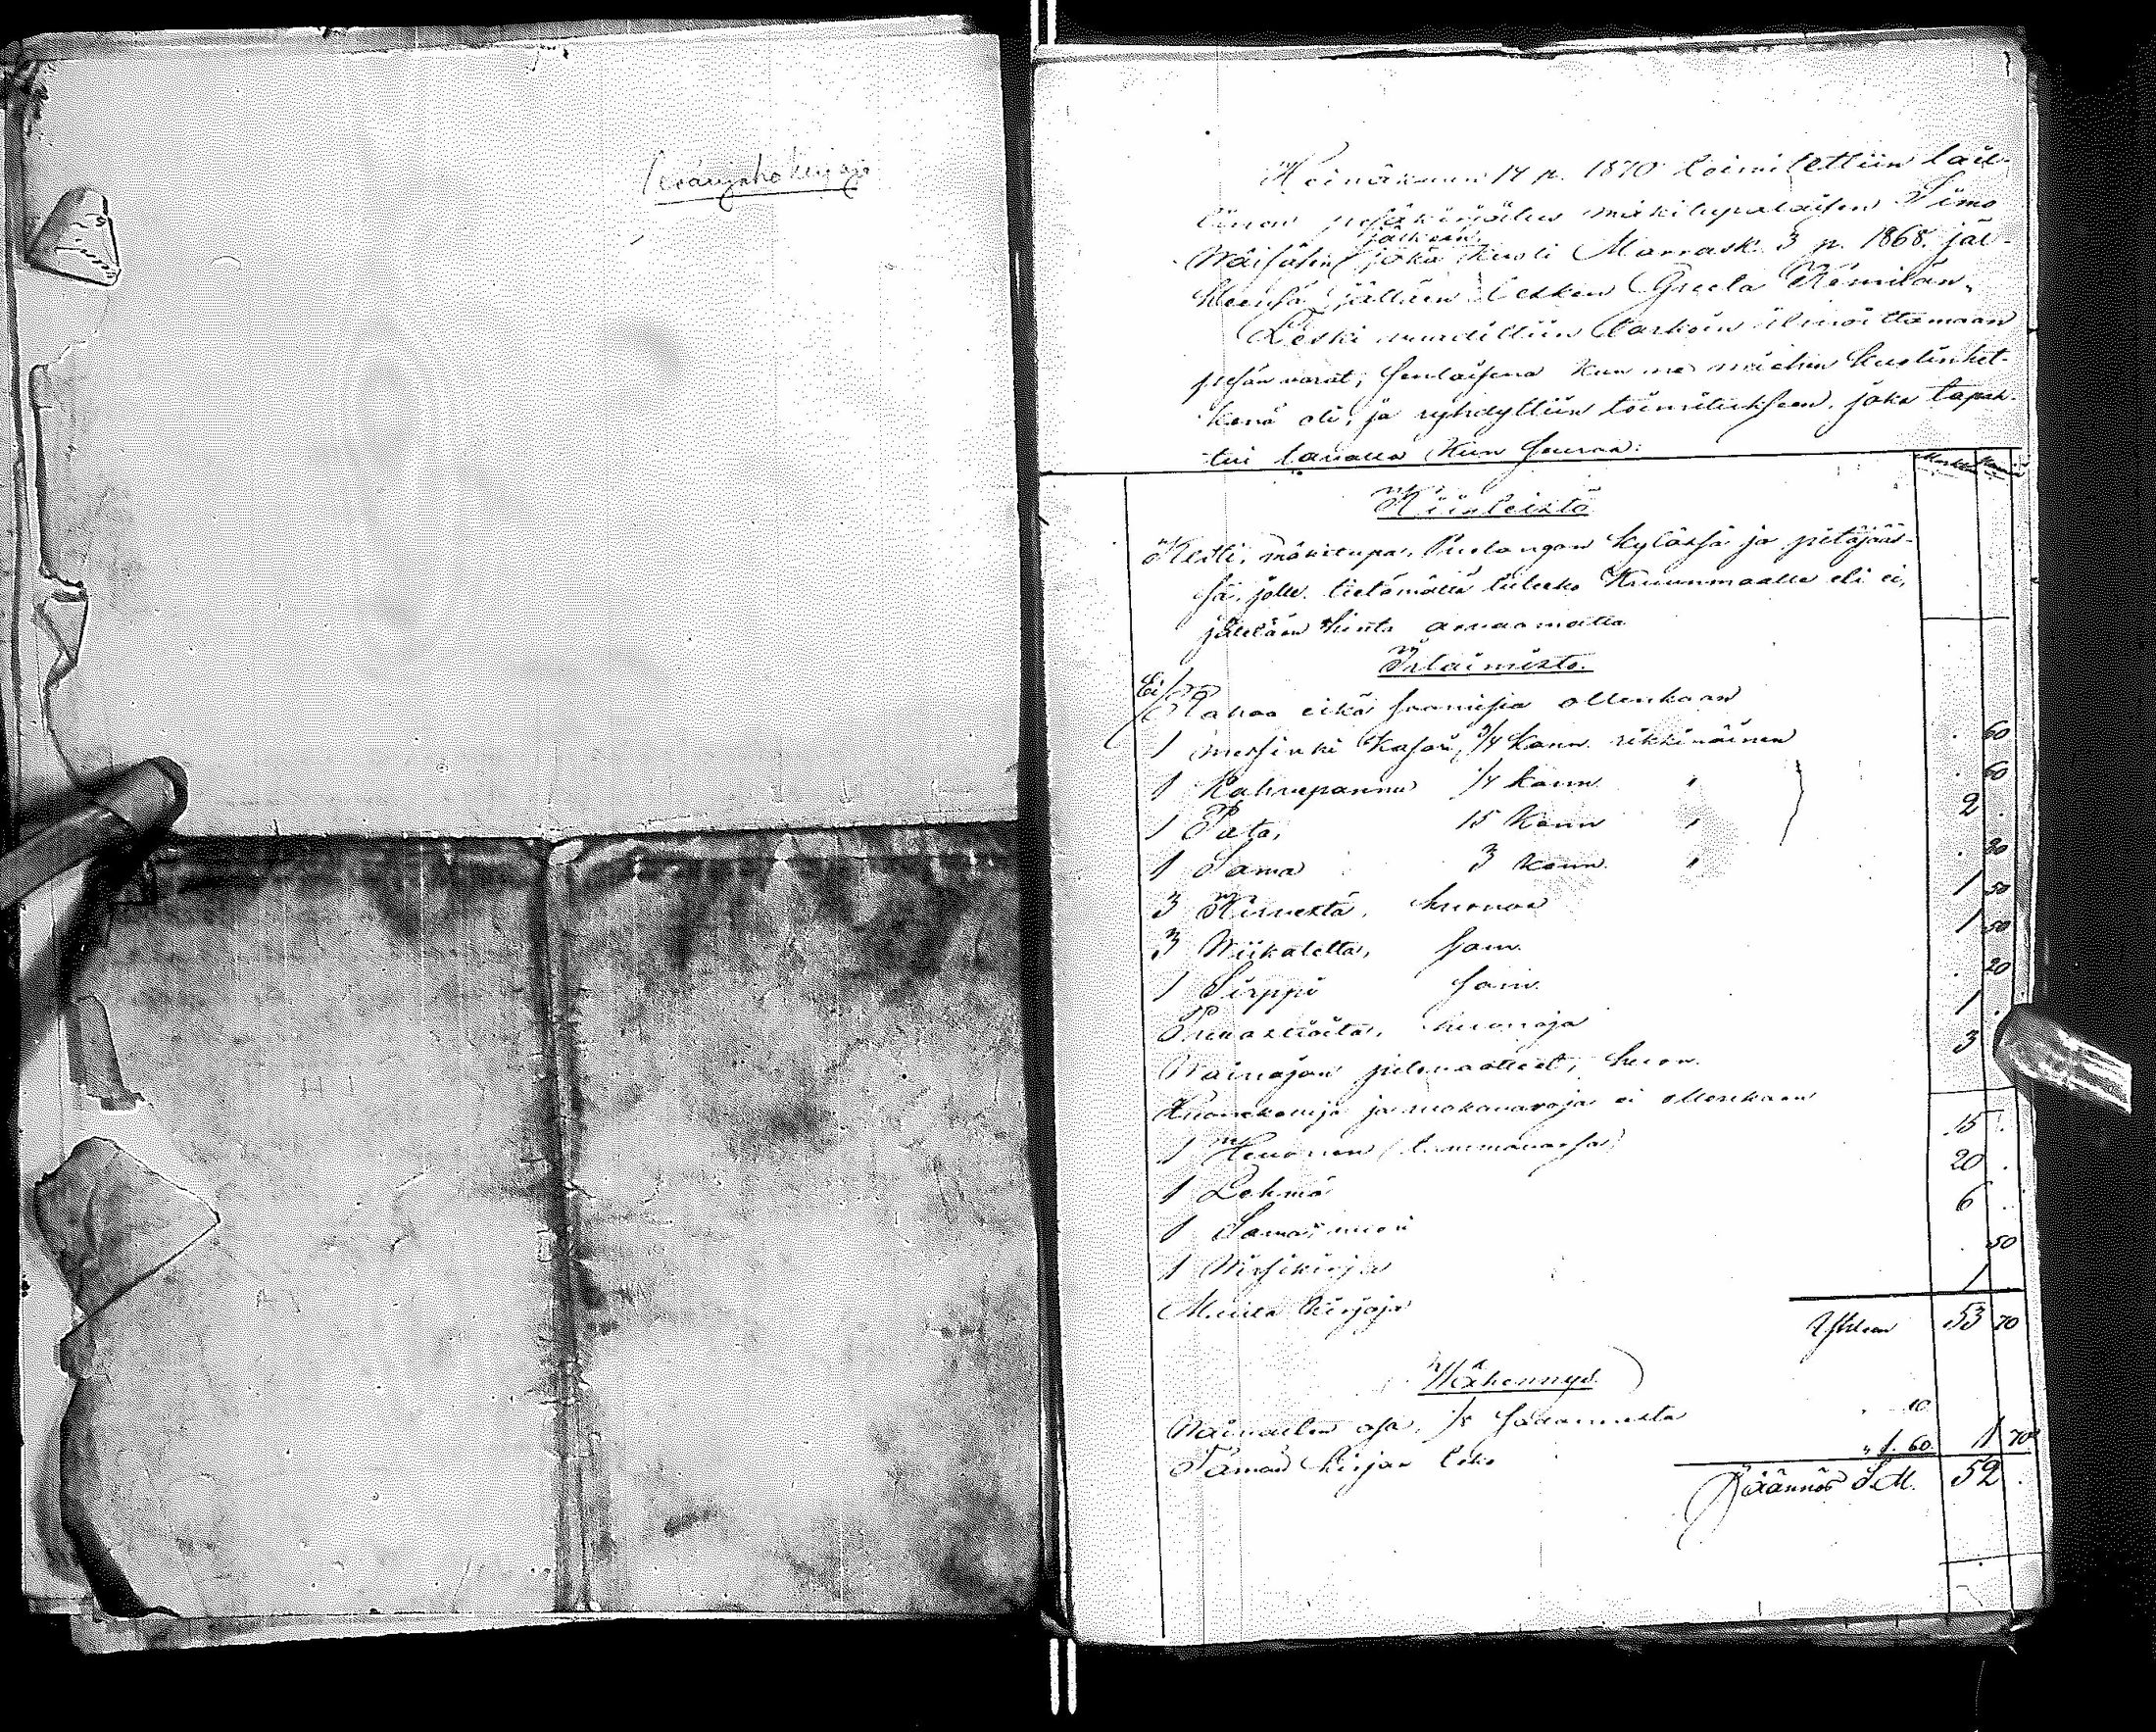 Perunkirjoja
Heinäkuun 14 p. 1870 toimitettiin lail-
linen pesäkirjoitus mäkitupalaisen Simo
jälkeen
Wäisäsen joka kuoli Marrask. 3 p. 1868. jät-
täen lesken Greeta
Leski vaadittiin tarkoin ilmoittamaan
pesän varat, senlaisena kun ne miehen kuolinhet-
kenä oli, ja ryhdyttiin toimitukseen, joka tapah-
tui tavalla kun seuraa:
Markka Penniä
Kiinteistö
Kesti, mäkitupa, Puolangan kylässä ja pitäjääs-
sä, jolle tietämättä tuleeko Kruunmaalle eli ei,
jätetään hinta arvaamatta
Irtaimisto.
Ei
Rahaa eikä saamisia ollenkaan
1 messinki Kasari, 3/4 kann. rikkinäinen . 60
1 Kahvepannu 1/4 kann. " . 60
1 Pata, 15 Kann " 2 .
1 Sama 3 kann. " . 30
3 Kirvestä, huonoa 1 50
3 Wiikatetta, sam. 1 50
1 Sirppi sam. . 20
Puuastioita, huonoja 1 .
Wainajan pitovaatteet, huon. 3
Huonekaluja ja ruokavaroja ei ollenkaan
1 Hevonen (tammavarsa) 15 .
1 Lehmä 20 .
1 Sama, nuori 6 .
1 Wirsikirja . 50
Muita Kirjoja 1
Yhteen 53 70
Wähennys
Waivasten osa, 1/8 sadannesta . 10
Tämän kirjan teko " 1. 60. 1 70
Jäännös S.M. 52 .